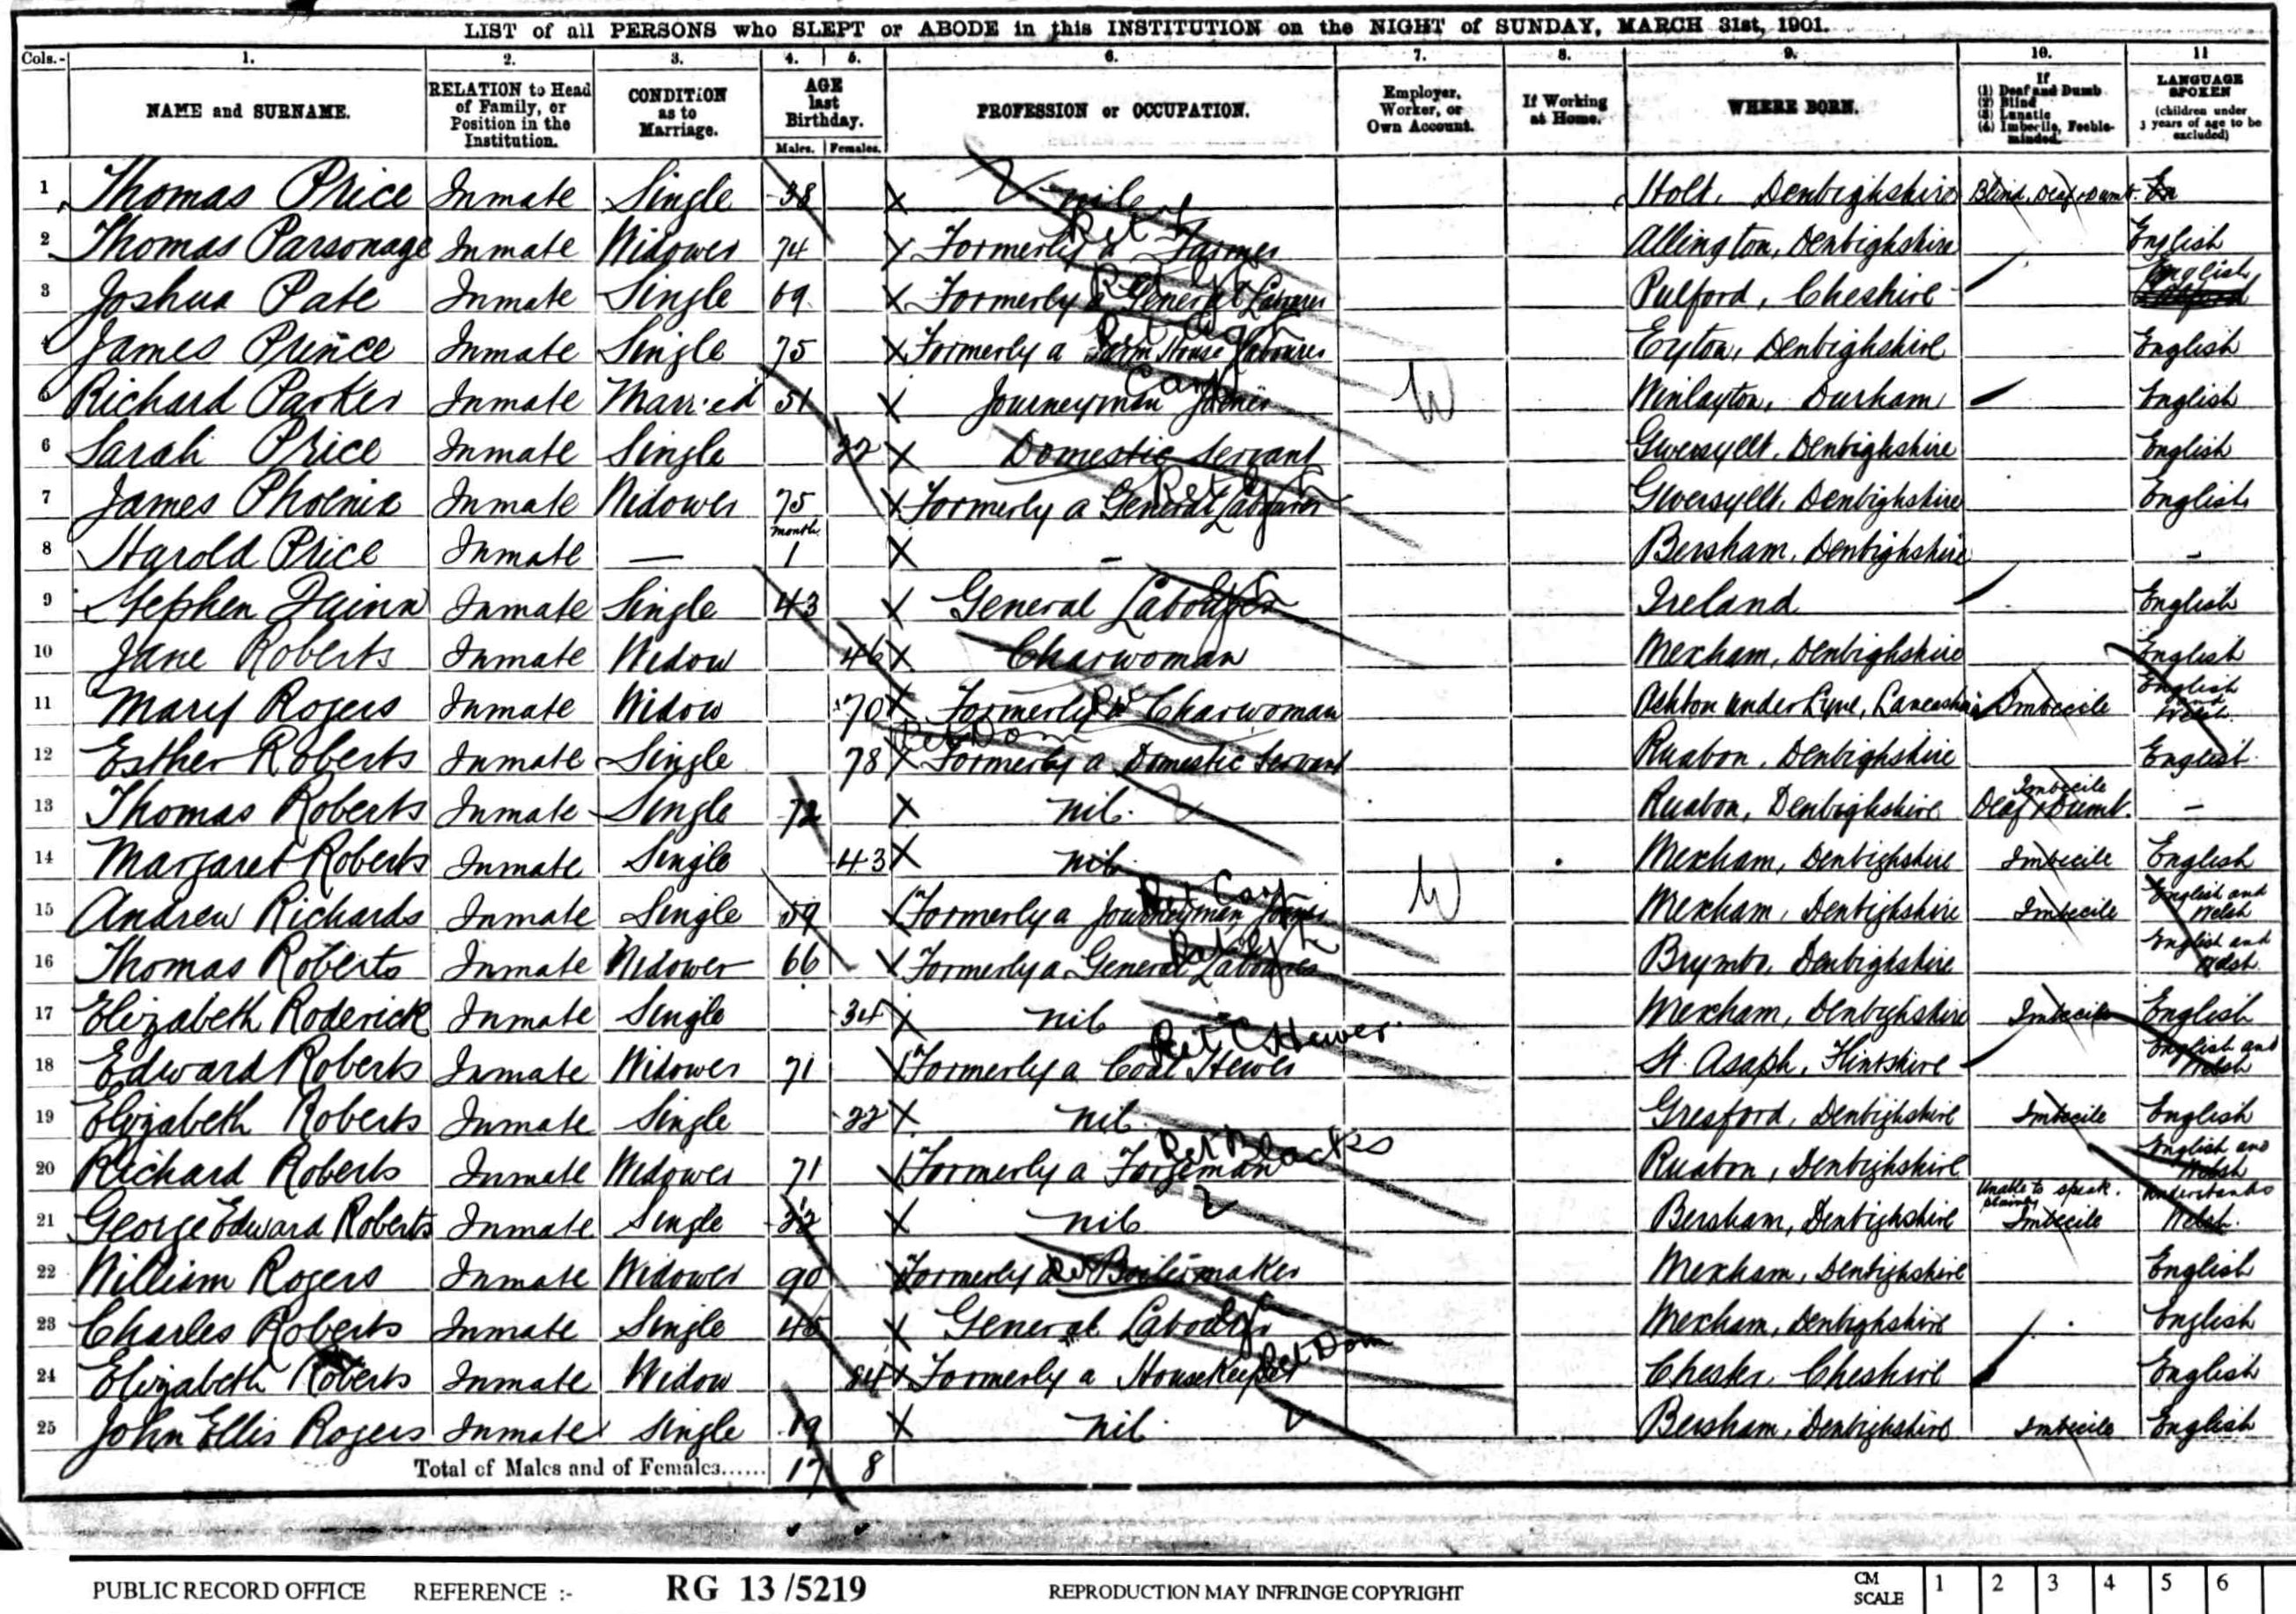 LIST of all PERSONS who SLEPT or ABODE in this INSTITUTION on the NIGHT of SUNDAY, MARCH 31st, 1901.
Cols.- 1. 2. 3. 4. 5. 6. 7. 8. 9. 10. 11
NAME and SURNAME. RELATION to Head of Family, or Position in the Institution. CONDITION as to Marriage. AGE last Birthday. Males. Females. PROFESSION or OCCUPATION. Employer, Worker, or Own Account. If Working at Home. WHERE BORN. If (1) Deaf and Dumb (2) Blind (3) Lunatic (4) Imbecile, Feeble-minded. LANGUAGE SPOKEN (children under 3 years of age to be excluded)
1 Thomas Price Inmate Single 38 X nil Holt, Denbighshire Blind, Deaf & Dumb. En
2 Thomas Parsonage Inmate Widower 74 X Formerly a Farmer Ret Allington, Denbighshire English
3 Joshua Pate Inmate Single 69 X Formerly a General Labourer Ret Pulford, Cheshire English
4 James Prince Inmate Single 75 X Formerly a Farm House Labourer Ret Eyton, Denbighshire English
5 Richard Parker Inmate Married 51 X Journeyman Joiner Carp W Winlayton, Durham English
6 Sarah Price Inmate Single 22 X Domestic Servant Gwersyllt, Denbighshire English
7 James Phoenix Inmate Widower 75 X Formerly a General Labourer Ret Gwersyllt, Denbighshire English
8 Harold Price Inmate — month 1 X - Bersham, Denbighshire -
9 Stephen Quinn Inmate Single 43 X General Labourer Ireland English
10 Jane Roberts Inmate Widow 46 X Charwoman Wrexham, Denbighshire English
11 Mary Rogers Inmate Widow 70 X Formerly a Charwoman Ashton under Lyne, Lancashire Imbecile English and Welsh
12 Esther Roberts Inmate Single 78 X Formerly a Domestic Servant Ret Dom Ruabon, Denbighshire English
13 Thomas Roberts Inmate Single 72 X nil. Ruabon, Denbighshire Imbecile Deaf & Dumb. -
14 Margaret Roberts Inmate Single 43 X nil Wrexham, Denbighshire Imbecile English
15 Andrew Richards Inmate Single 59 X Formerly a Journeyman Joiner Ret Carp W Wrexham, Denbighshire Imbecile English and Welsh
16 Thomas Roberts Inmate Widower 66 X Formerly a General Labourer Ret Brymbo, Denbighshire English and Welsh
17 Elizabeth Roderick Inmate Single 34 X nil Wrexham, Denbighshire Imbecile English
18 Edward Roberts Inmate Widower 71 X Formerly a Coal Hewer Ret C Hewer St. Asaph, Flintshire English and Welsh
19 Elizabeth Roberts Inmate Single 22 X nil. Gresford, Denbighshire Imbecile English
20 Richard Roberts Inmate Widower 71 X Formerly a Forgeman Ret Blacks Ruabon, Denbighshire English and Welsh
21 George Edward Roberts Inmate Single 22 X nil Bersham, Denbighshire Unable to speak plainly Imbecile Understands Welsh.
22 William Rogers Inmate Widower 90 X Formerly a Boilermaker Ret Wrexham, Denbighshire English
23 Charles Roberts Inmate Single 45 X General Labourer Wrexham, Denbighshire English
24 Elizabeth Roberts Inmate Widow 84 X Formerly a Housekeeper Ret Dom Chester, Cheshire English
25 John Ellis Rogers Inmate Single 19 X nil. Bersham, Denbighshire Imbecile English
Total of Males and of Females...... 17 8
PUBLIC RECORD OFFICE REFERENCE :- RG 13 /5219 REPRODUCTION MAY INFRINGE COPYRIGHT CM SCALE 1 2 3 4 5 6